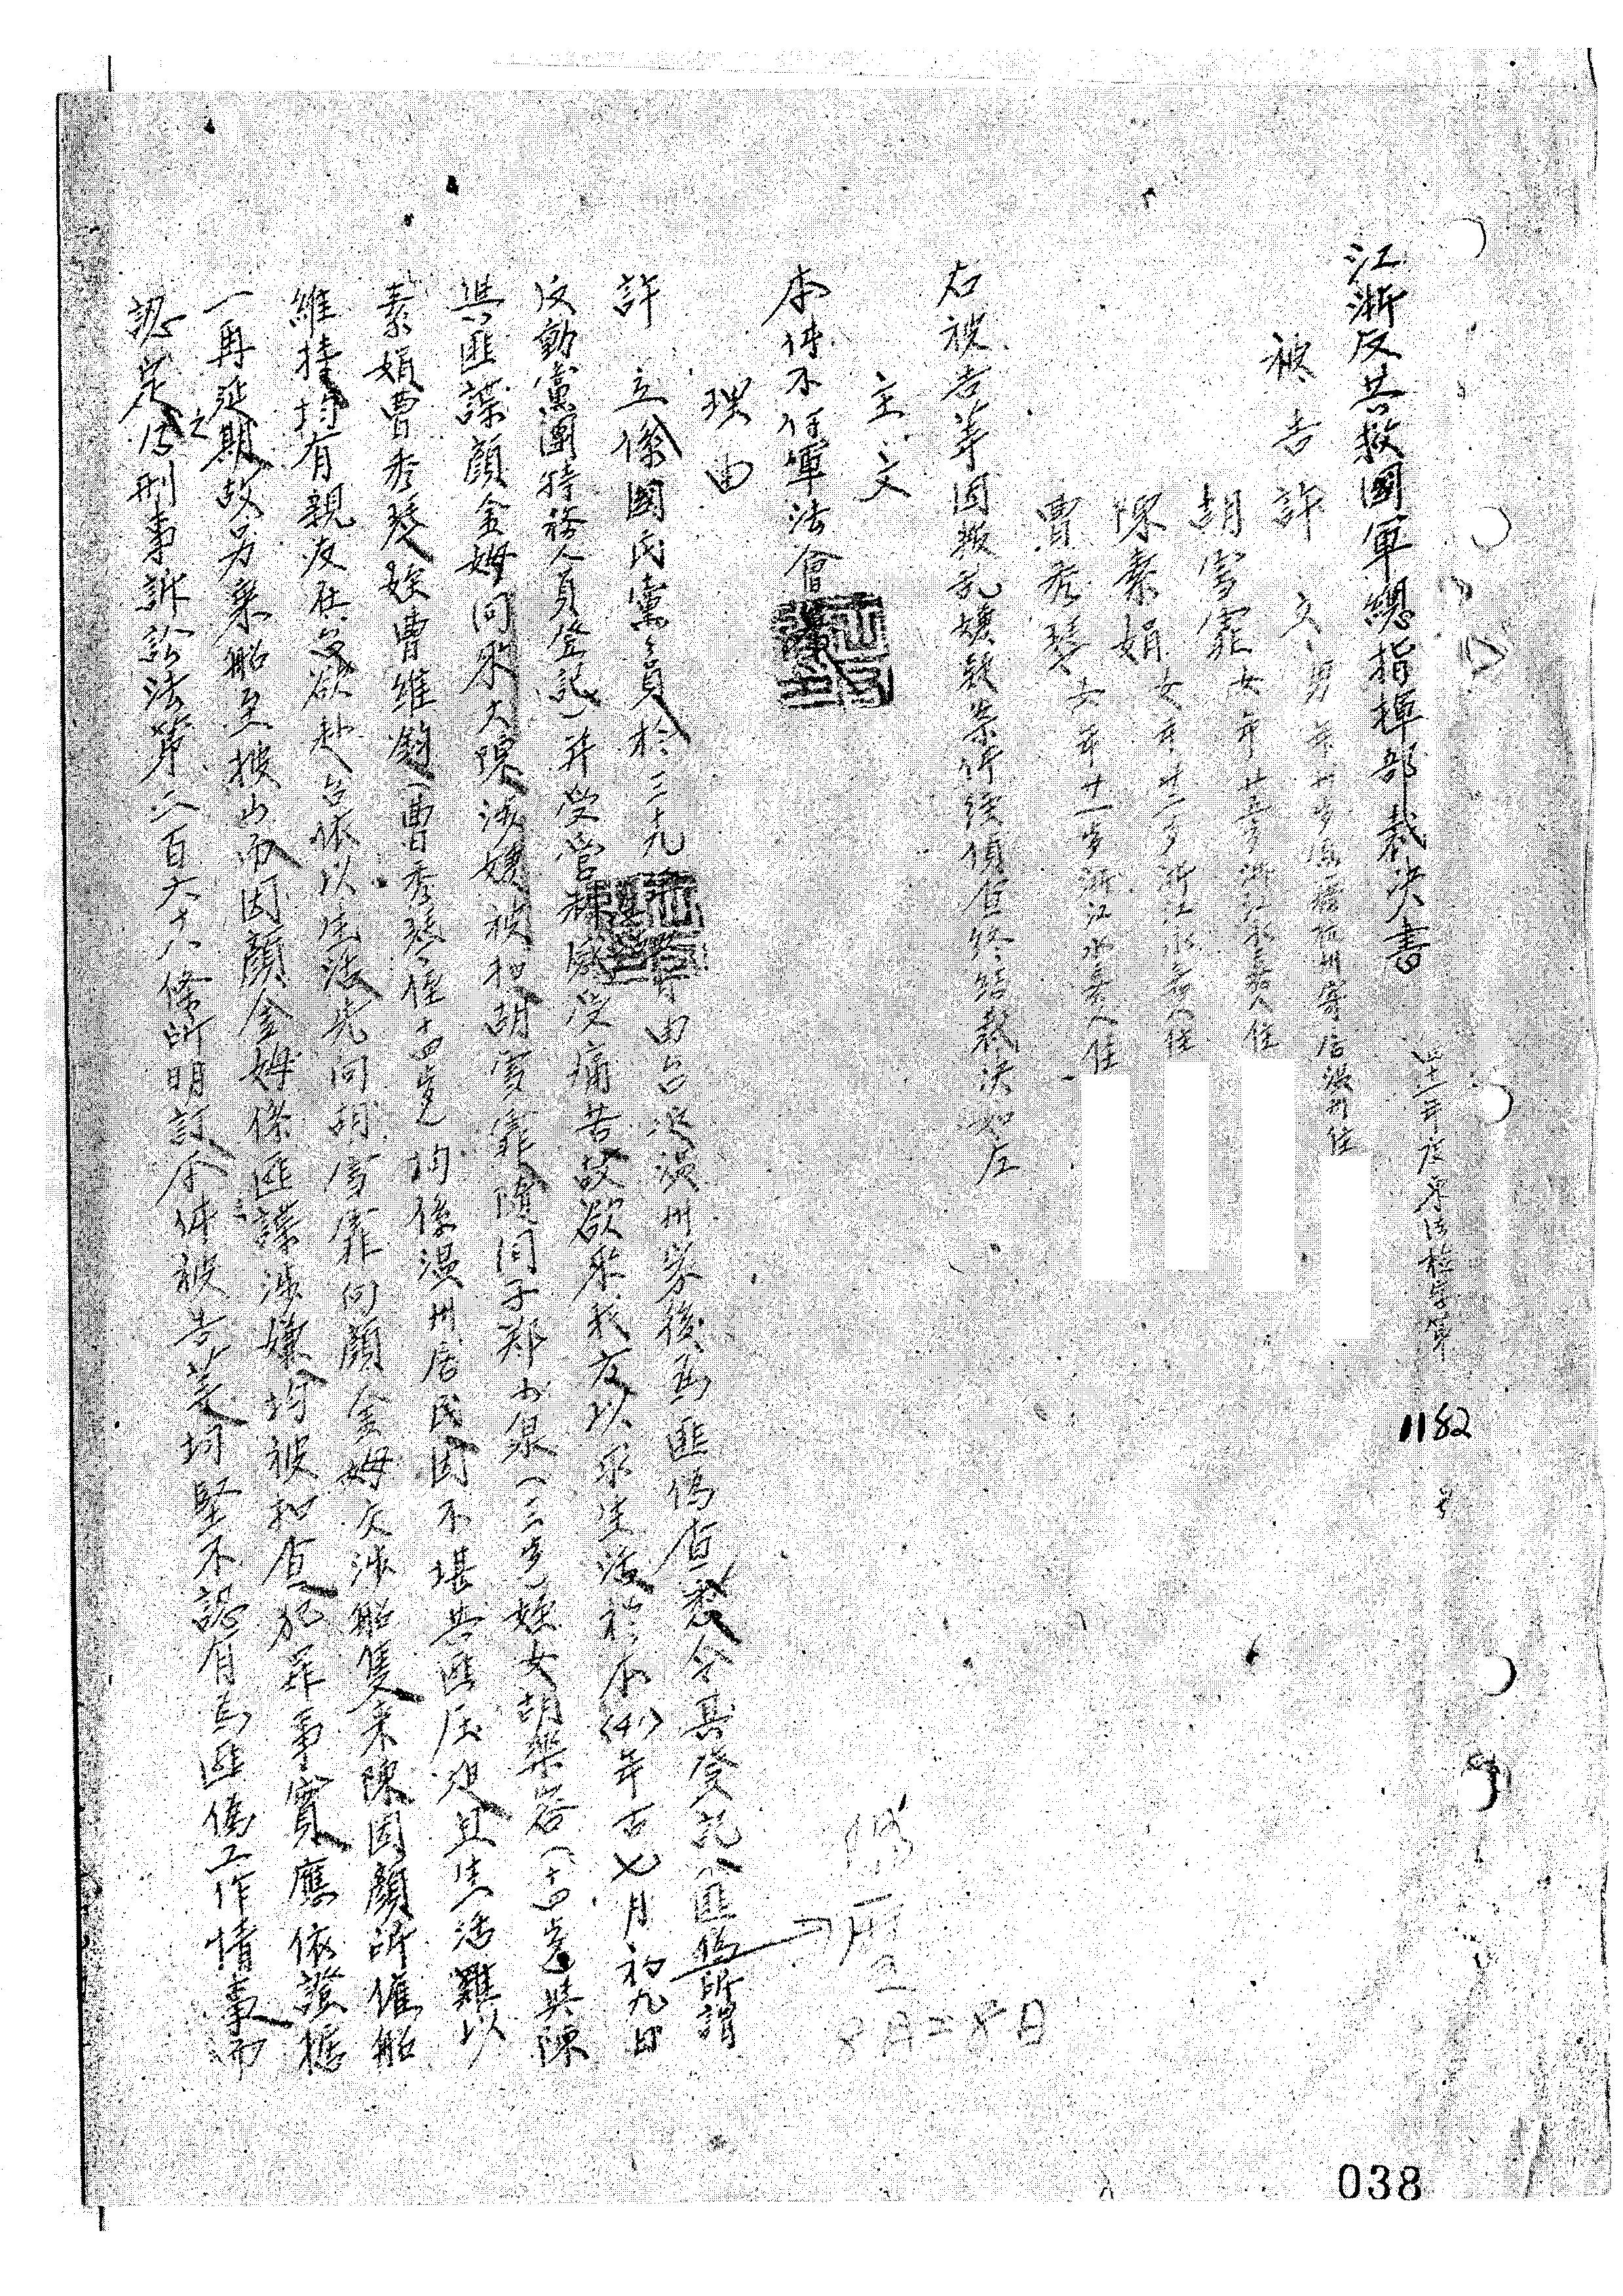 江浙反共救國軍總指揮部裁決書
四十一年度 字第 1182 号
被告 許立 男年 歲 住
胡雪霏 女年廿五歲浙江永嘉人住
陳素娟 女年廿二歲浙江永嘉人住
曹秀琴 女年廿一歲浙江永嘉人住
右被告等因叛乱嫌疑案件經偵查終結裁決如左
主文
本件不付軍法會審
理由
許立係國民黨黨員於三十九年 月由台返溫州家後為匪偽查悉令其登記(匪偽所謂
反動黨團特務人員登記)并受管 感受痛苦故欲來我方以求生活於本(41)年古七月初九日
與匪諜顏金姆同來大陳涉嫌被扣胡雪霏隨同子鄭小泉(三歲)姪女胡樂 (十四歲)與陳
素娟曹秀琴姪曹維鈞(曹秀琴侄十四歲)均係溫州居民因不堪共匪压迫且生活難以
維持均有親友在台欲赴台依以生活先向胡雪霏向顏金姆 涉船隻來陳因顏所僱船
一再延期故另乘船至披山而因顏金姆係匪諜之涉嫌均被扣查犯罪事實應依證據
認定之為刑事訴訟法第二百六十八條所明訂本件被告等均堅不認有為匪偽工作情事而
修
國曆
8月28日
038